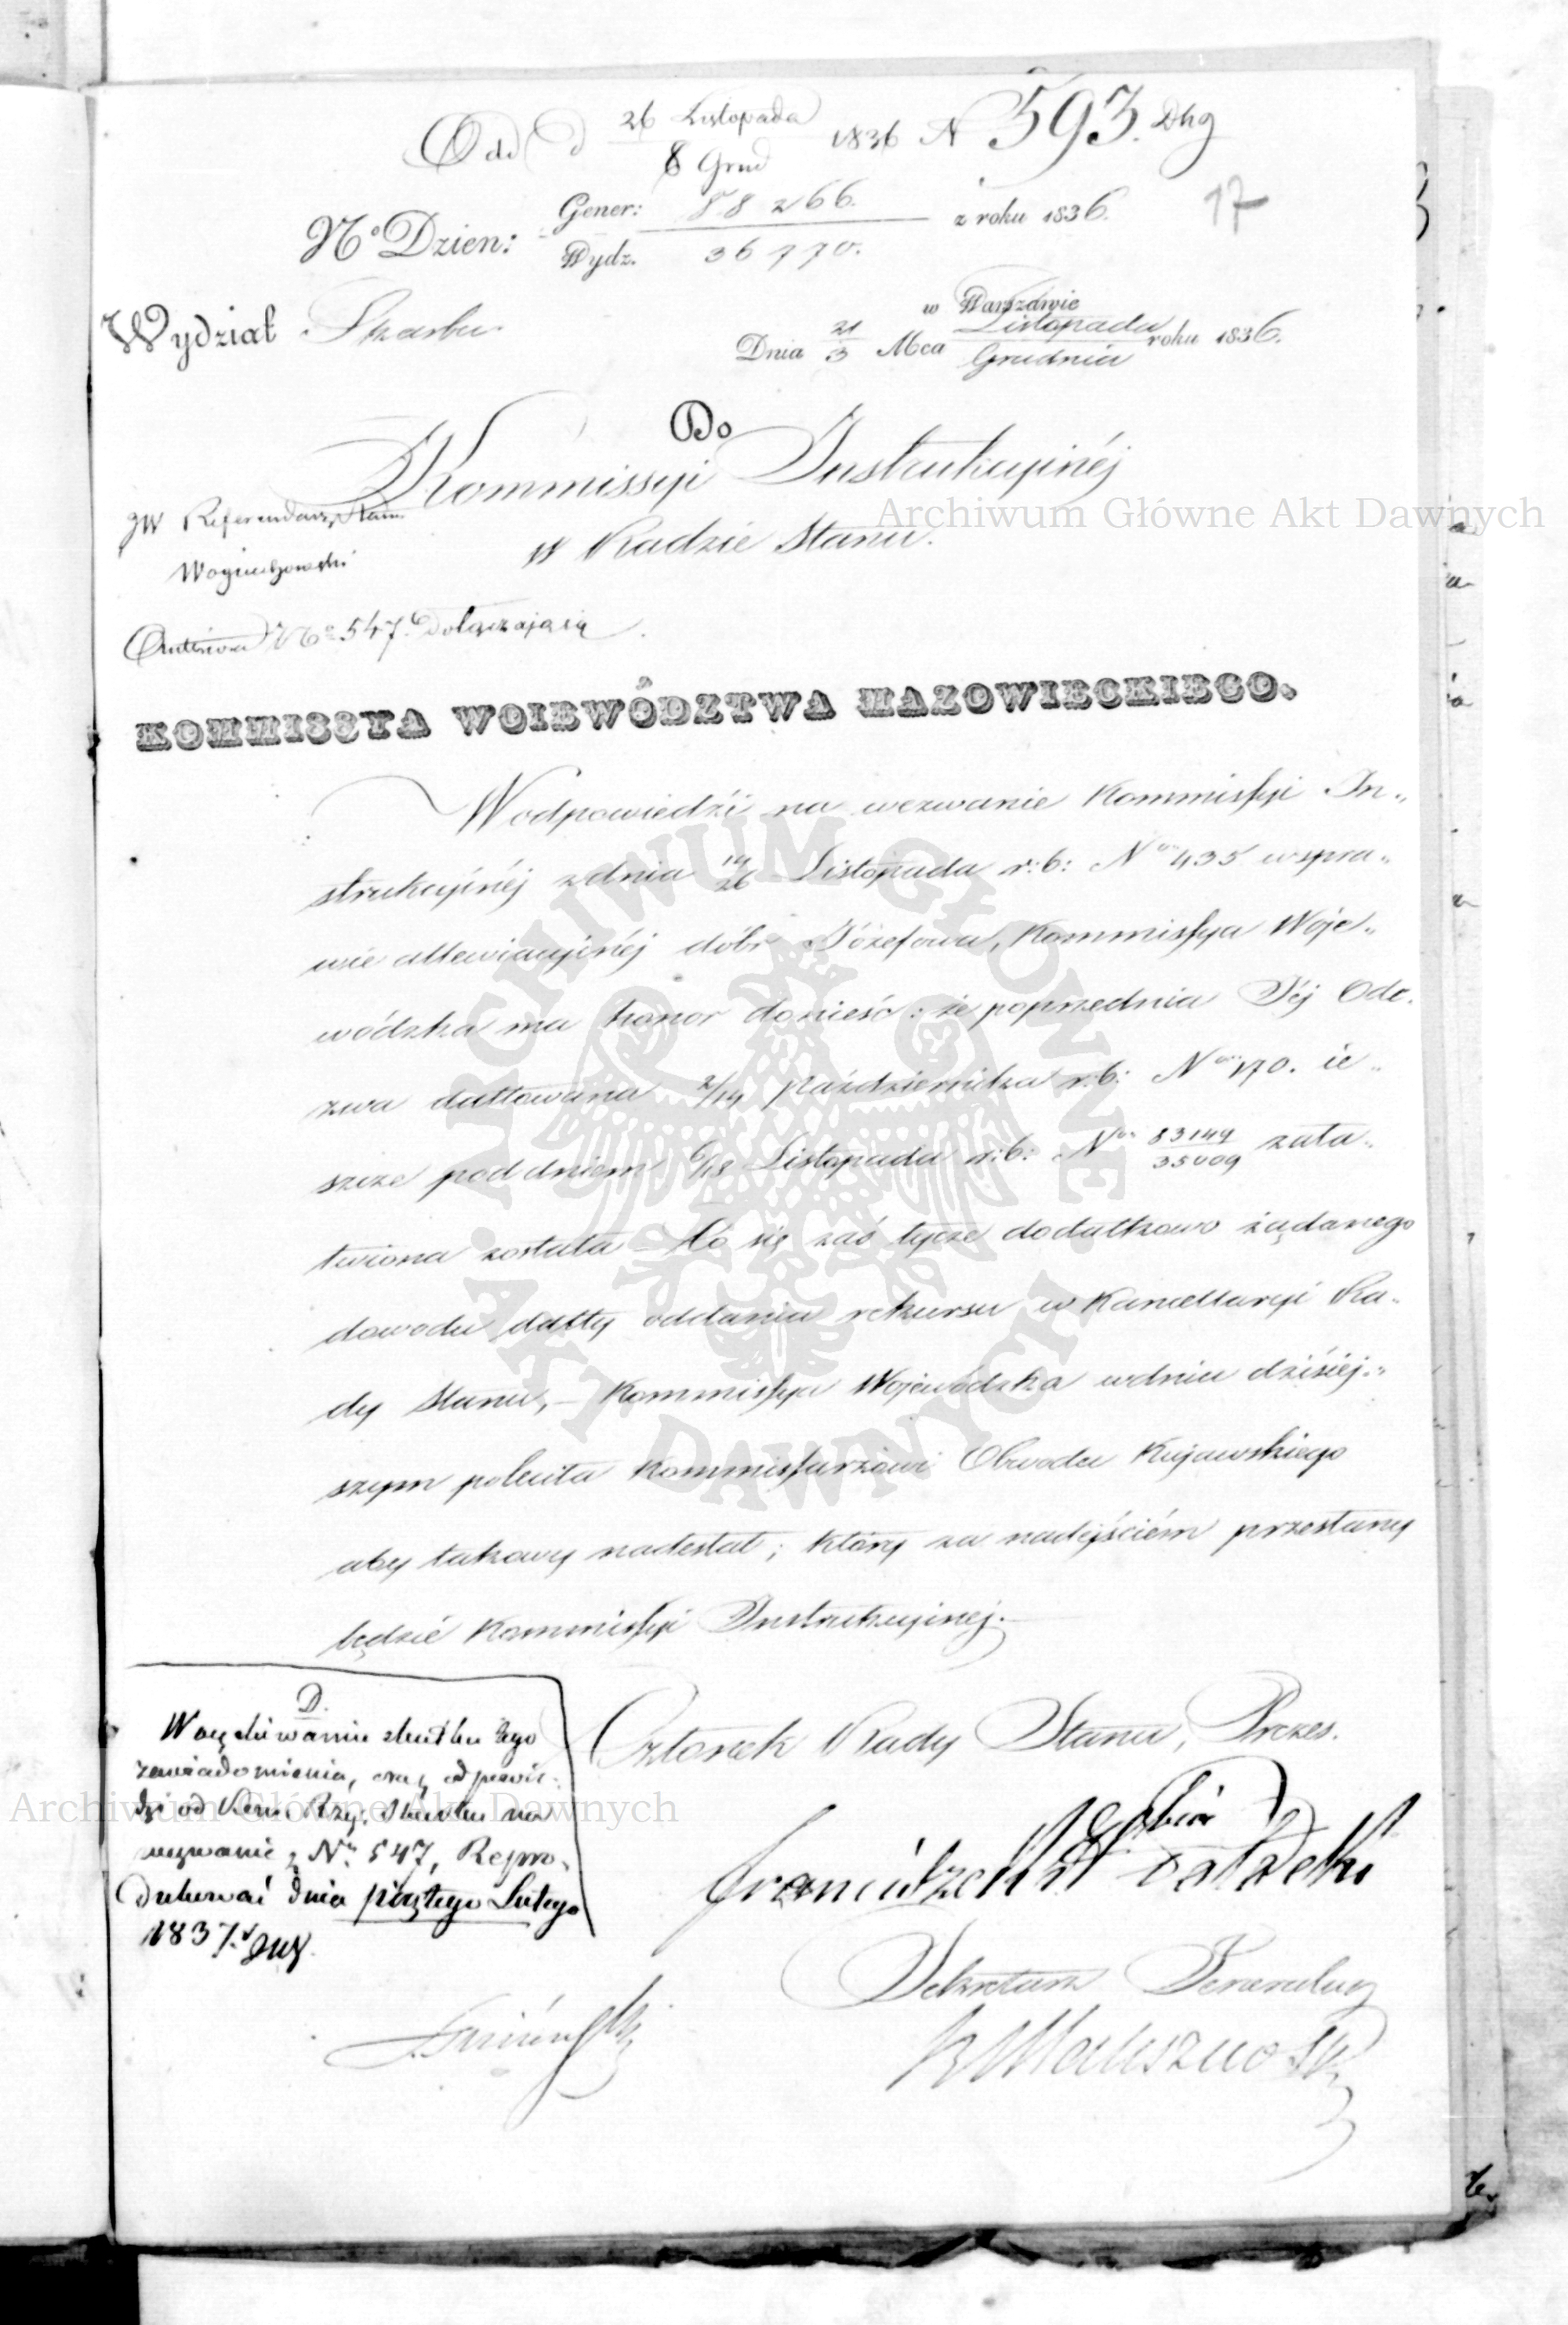 Odd d 26 Listopada
8 Grud 1836 N 593. Dhg
17
Nº Dzien: Gener: 88266. z roku 1836.
Wydz. 36770.
Wydział Skarbu.
w Warszawie
Dnia 21/3 Mca Listopada/Grudnia roku 1836.
Do
Kommissyi Instrukcyinéj
w Radzie Stanu.
JW Referendarz Stanu
Woyciechowski
Nº 547. dołączają się
KOMMISSYA WOIEWÓDZTWA MAZOWIECKIEGO.
W odpowiedzi na wezwanie Kommissyi In„
strukcyinéj z dnia 14/26 Listopada r: b: Nº 435 w spra„
wie allewiacyinéj dóbr Józefowa, Kommissya Woje„
wódzka ma honor donieść: że poprzednia Jéj Ode„
zwa dattowana 2/14 Października r: b: Nº 170. ie„
szcze pod dniem 6/18 Listopada r: b: Nº 83149/35009 zała„
twiona została – Co się zaś tycze dodatkowo żądanego
dowodu datty oddania rekursu w Kancellaryi Ra„
dy Stanu, – Kommissya Wojewódzka w dniu dzisiej„
szym poleciła Kommissarzowi Obwodu Kujawskiego
aby takowy nadesłał; który za nadejściém przesłany
będzie Kommissyi Instrukcyinej.
D.
W oczekiwaniu skutku tego
zawiadomienia, oraz odpowie„
dzi od Kom. Rzą: Skarbu na
wezwanie z Nº 547, Repro„
dukować dnia piątego Lutego
1837.
Członek Rady Stanu, Prezes.
Sekretarz Jeneralny
Archiwum Główne Akt Dawnych
Archiwum Główne Akt Dawnych
· ARCHIWUM GŁÓWNE ·
AKT DAWNYCH